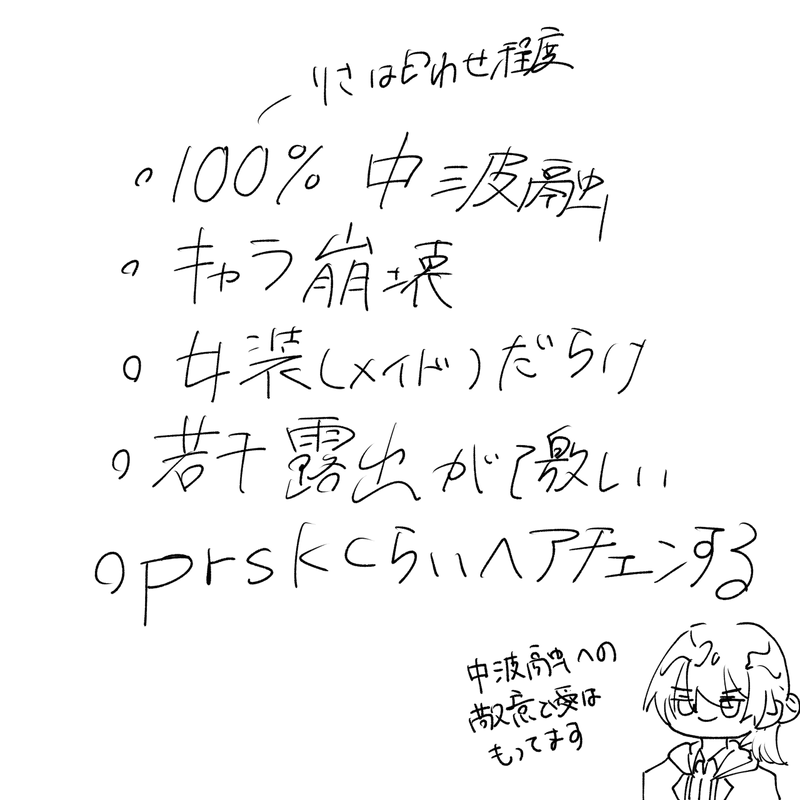 りさは匂わせ程度
○100% 中波融
○キャラ崩壊
○女装(メイド)だらけ
○若干露出が激しい
○prskくらいヘアチェンする
中波融への
敬意と愛は
もってます